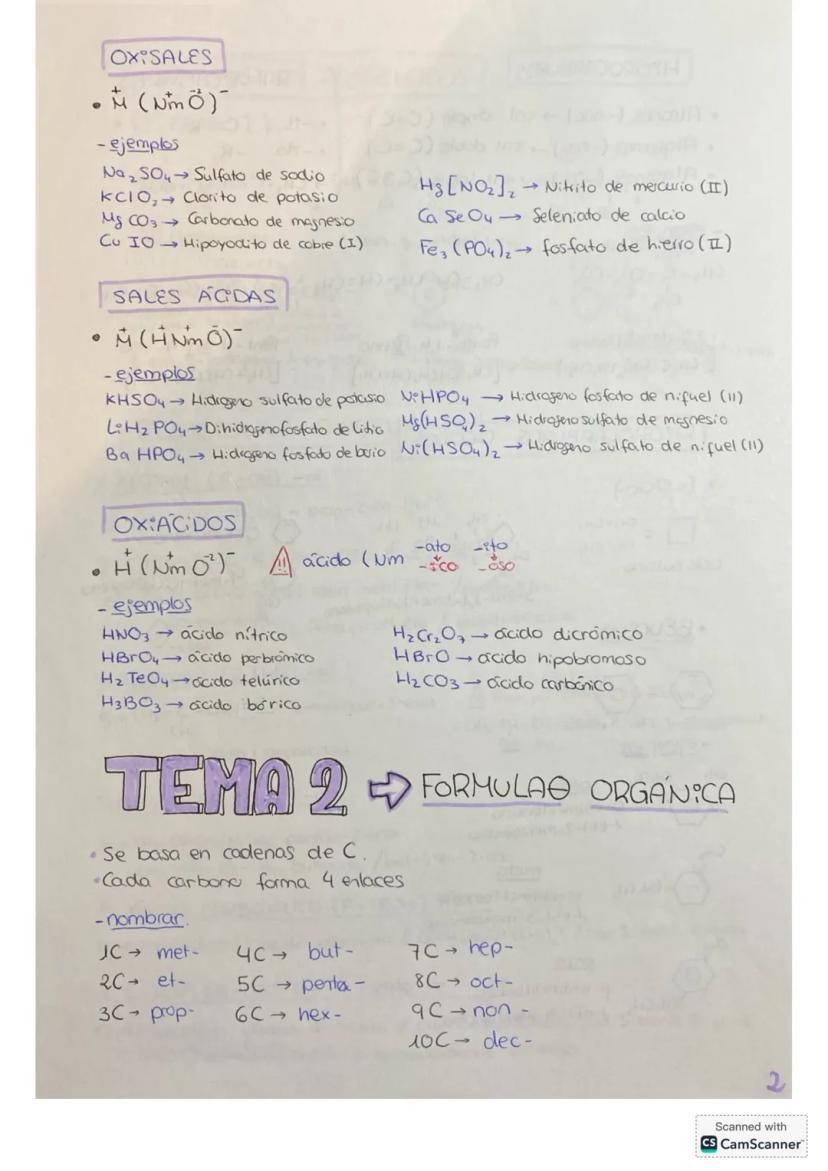 OXISALES
• M⁺ (Nm⁺ O⁻²)⁻
- ejemplos
Na₂SO₄ → Sulfato de sodio
KClO₂ → Clorito de potasio
MgCO₃ → Carbonato de magnesio
CuIO → Hipoyodito de cobre (I)
Hg[NO₂]₂ → Nitrito de mercurio (II)
CaSeO₄ → Seleniato de calcio
Fe₃(PO₄)₂ → fosfato de hierro (II)
SALES ÁCIDAS
• M⁺ (H⁺ Nm⁺ O⁻)⁻
- ejemplos
KHSO₄ → Hidrogeno sulfato de potasio
LiH₂PO₄ → Dihidrogenofosfato de Litio
BaHPO₄ → Hidrogeno fosfato de bario
NiHPO₄ → Hidrogeno fosfato de níquel (II)
Mg(HSO₄)₂ → Hidrogeno sulfato de magnesio
Ni(HSO₄)₂ → Hidrogeno sulfato de níquel (II)
OXIÁCIDOS
• H⁺ (Nm⁺ O⁻²)⁻ ⚠ ácido (Nm -ato -ito
-ico -oso
- ejemplos
HNO₃ → ácido nítrico
HBrO₄ → ácido perbrómico
H₂TeO₄ → ácido telúrico
H₃BO₃ → ácido bórico
H₂Cr₂O₇ → ácido dicrómico
HBrO → ácido hipobromoso
H₂CO₃ → ácido carbónico
TEMA 2 ⇒ FORMULAO ORGÁNICA
• Se basa en cadenas de C.
• Cada carbono forma 4 enlaces
- nombrar.
1C → met-
2C → et-
3C → prop-
4C → but-
5C → penta-
6C → hex-
7C → hep-
8C → oct-
9C → non-
10C → dec-
2
Scanned with
CS CamScanner